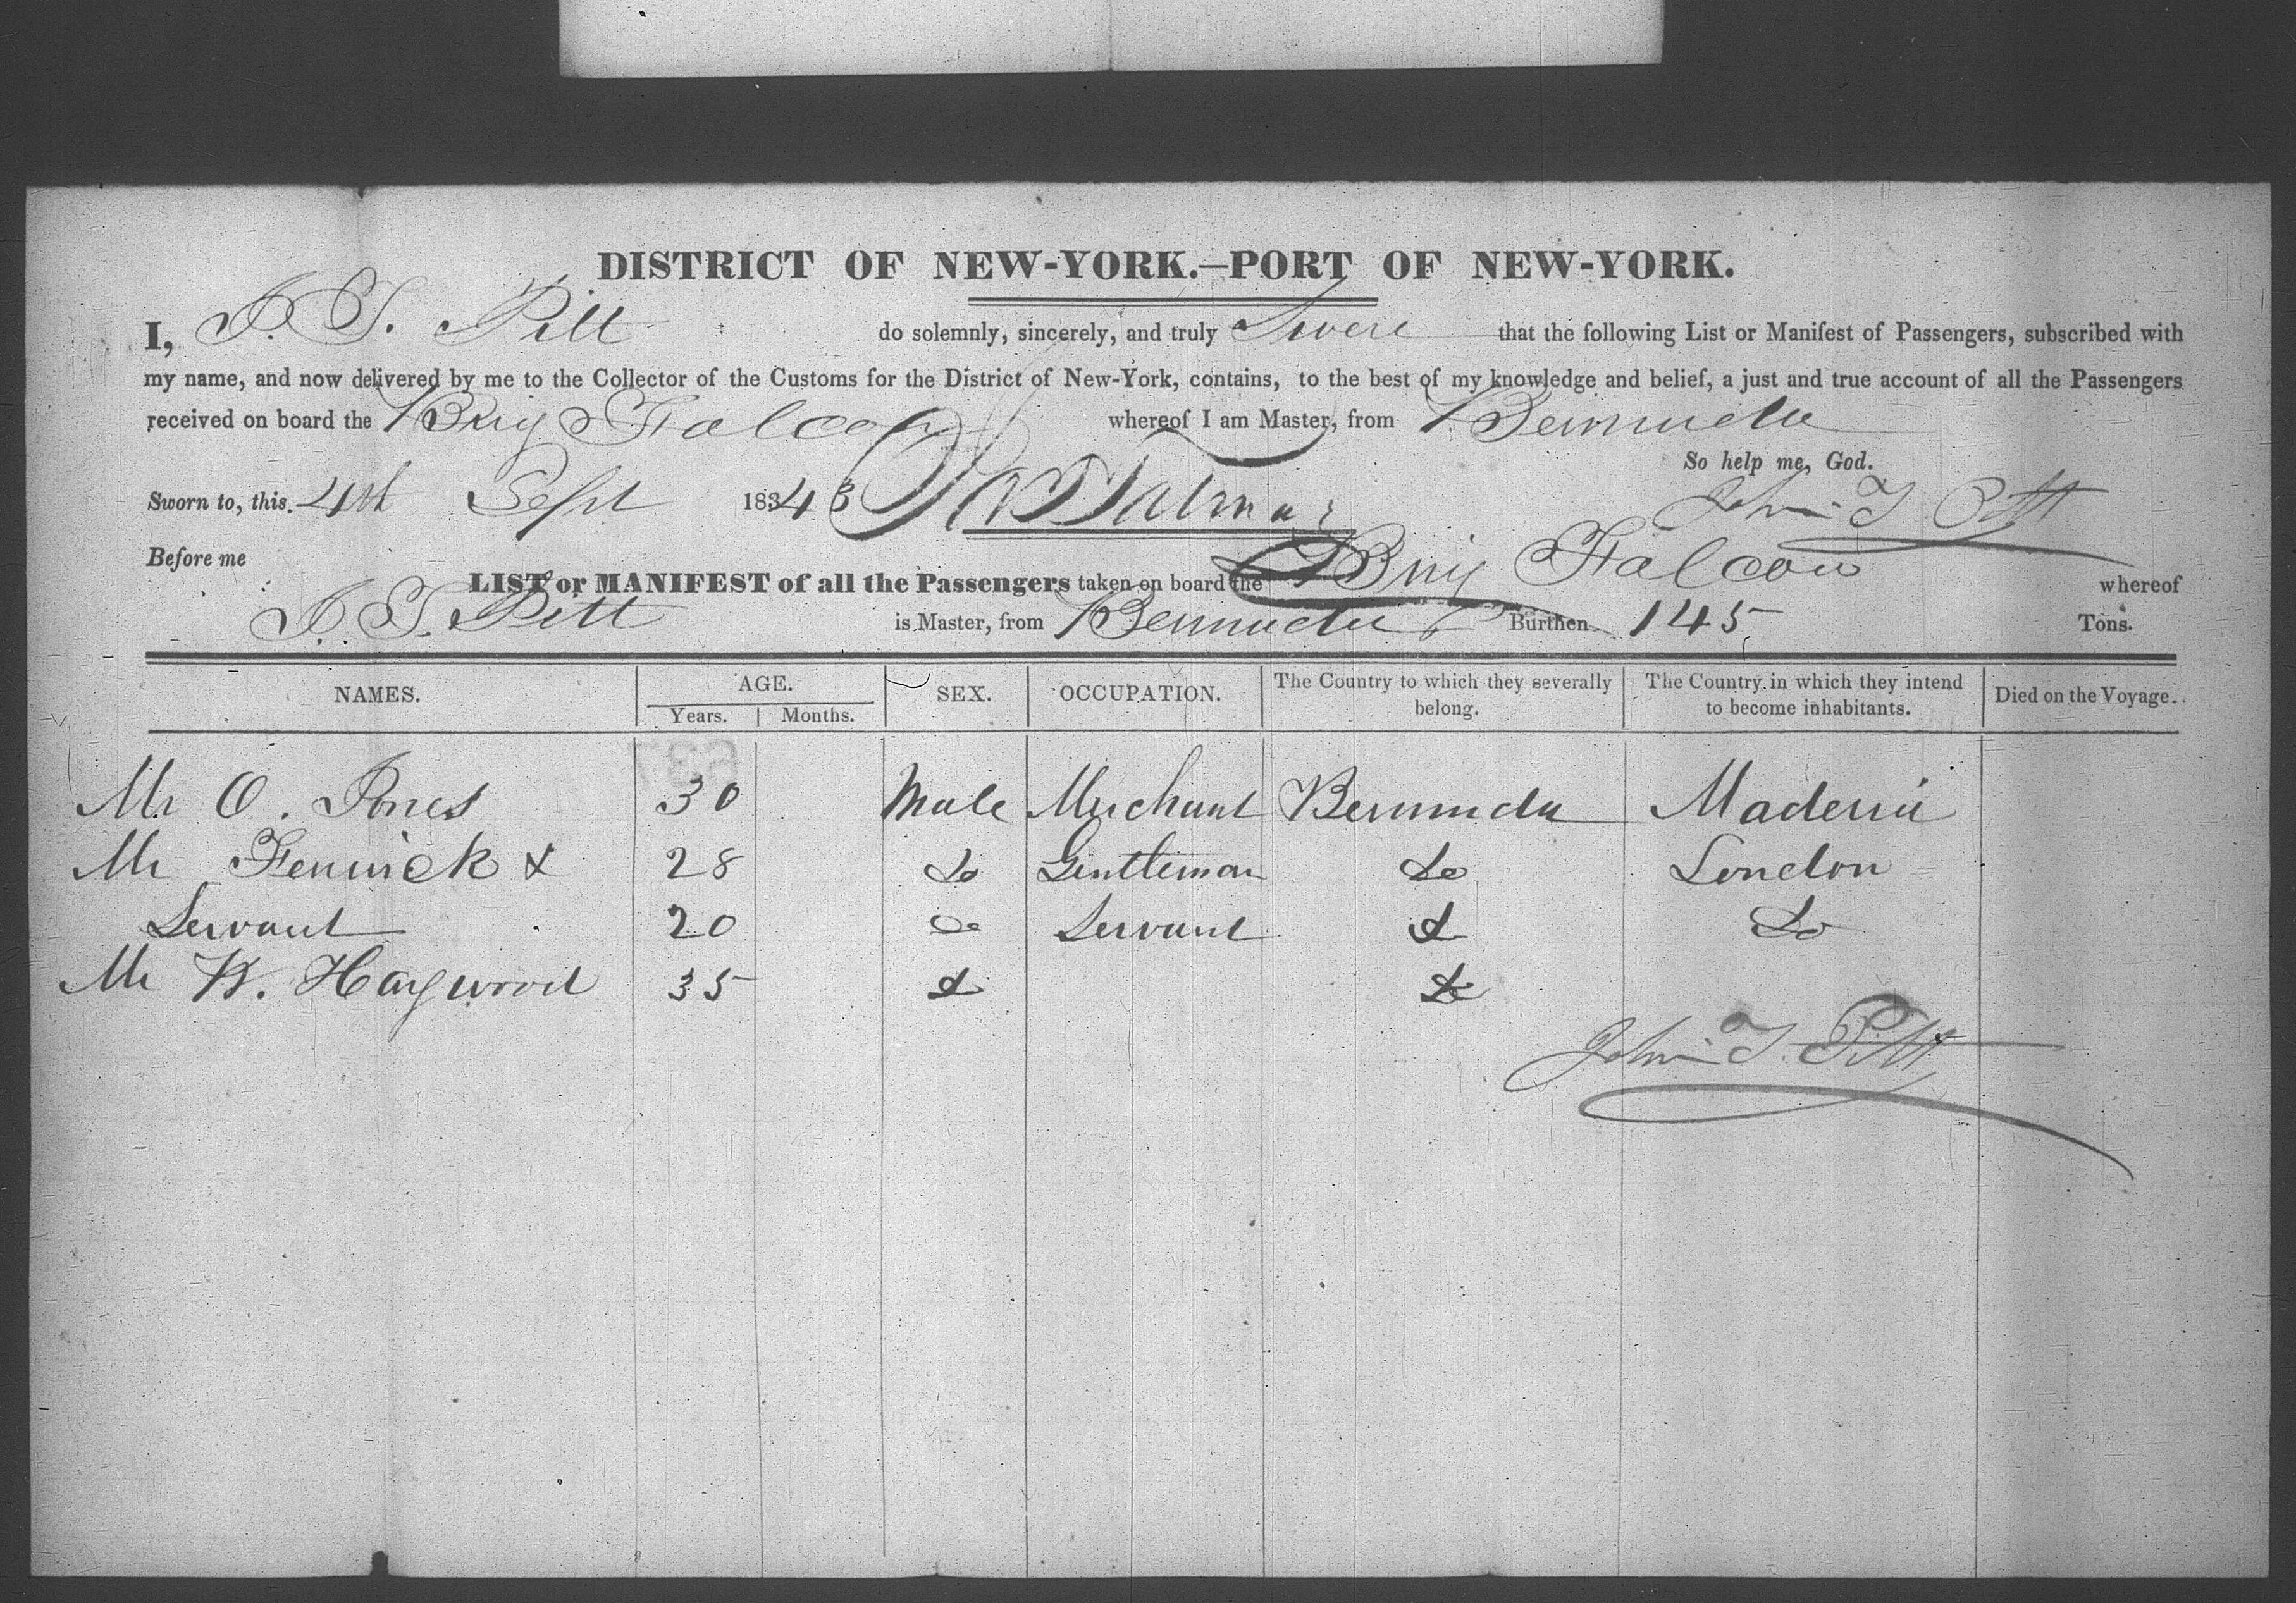 DISTRICT OF NEW-YORK.—PORT OF NEW-YORK.
I, J. T. Pitt do solemnly, sincerely, and truly Swere that the following List or Manifest of Passengers, subscribed with
my name, and now delivered by me to the Collector of the Customs for the District of New-York, contains, to the best of my knowledge and belief, a just and true account of all the Passengers
received on board the Brig Falcon whereof I am Master, from Bermuda
So help me, God.
Sworn to, this 4th Sept 1843 John T Pitt
Before me
LIST or MANIFEST of all the Passengers taken on board the Brig Falcon whereof
J. T. Pitt is Master, from Bermuda Burthen 145 Tons.
NAMES. AGE. Years. Months. SEX. OCCUPATION. The Country to which they severally belong. The Country in which they intend to become inhabitants. Died on the Voyage.
Mr O. Jones 30 Male Merchant Bermuda Maderia
Mr Fenwick & 28 Do Gentleman Do London
Servant 20 Do Servant Do Do
Mr W. Haygwood 35 Do Do
John T. Pitt